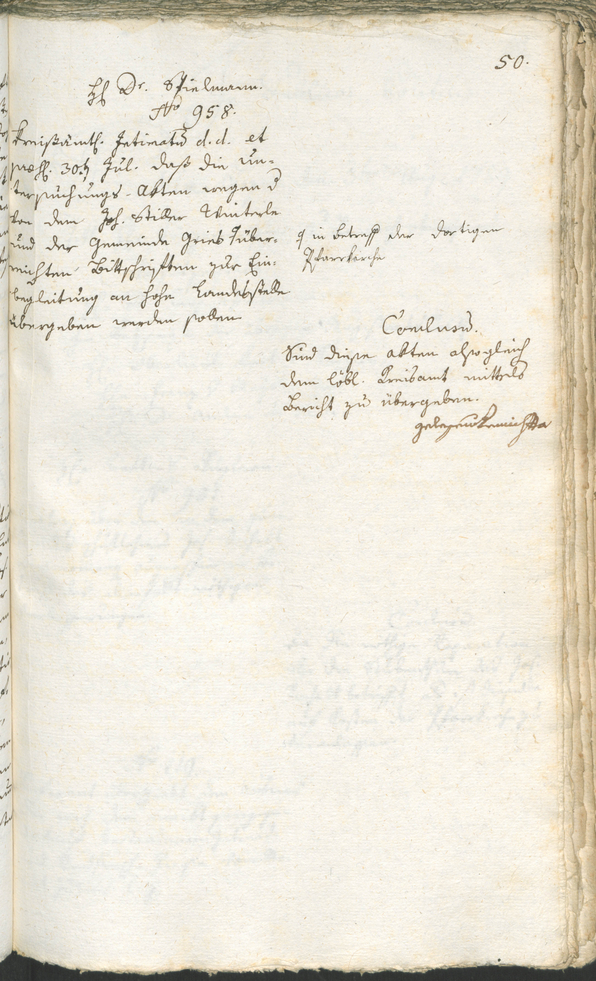 50.
H. Dr. Spielmann.
No 958.
Kreißämtl. Intimatũ d.d. et
præs. 30t Jul. daß die Un-
tersuchungs-Akten wegen d
von dem Joh. Stiller Winterle
und der Gemeinde Gries über-
reichten Bittschriften zur Ein-
begleitung an hohe Landesstelle
übergeben werden sollen
in betreff der dortigen
Pfarrkirche
Conclusũ.
Sind diese akten alsogleich
dem löbl. Kreisamt mittels
Bericht zu übergeben.